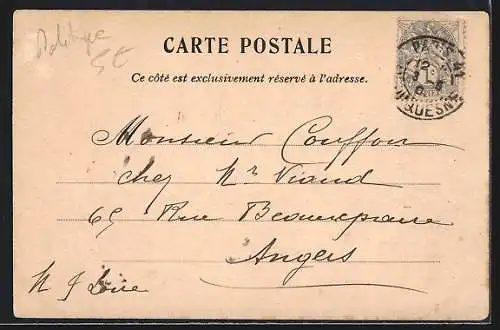 CARTE POSTALE
Ce côté est exclusivement réservé à l'adresse.
PARIS - 41
Monsieur Couffon
chez Mr Viaud
65 Rue Beaurepaire
Angers
M & Loire